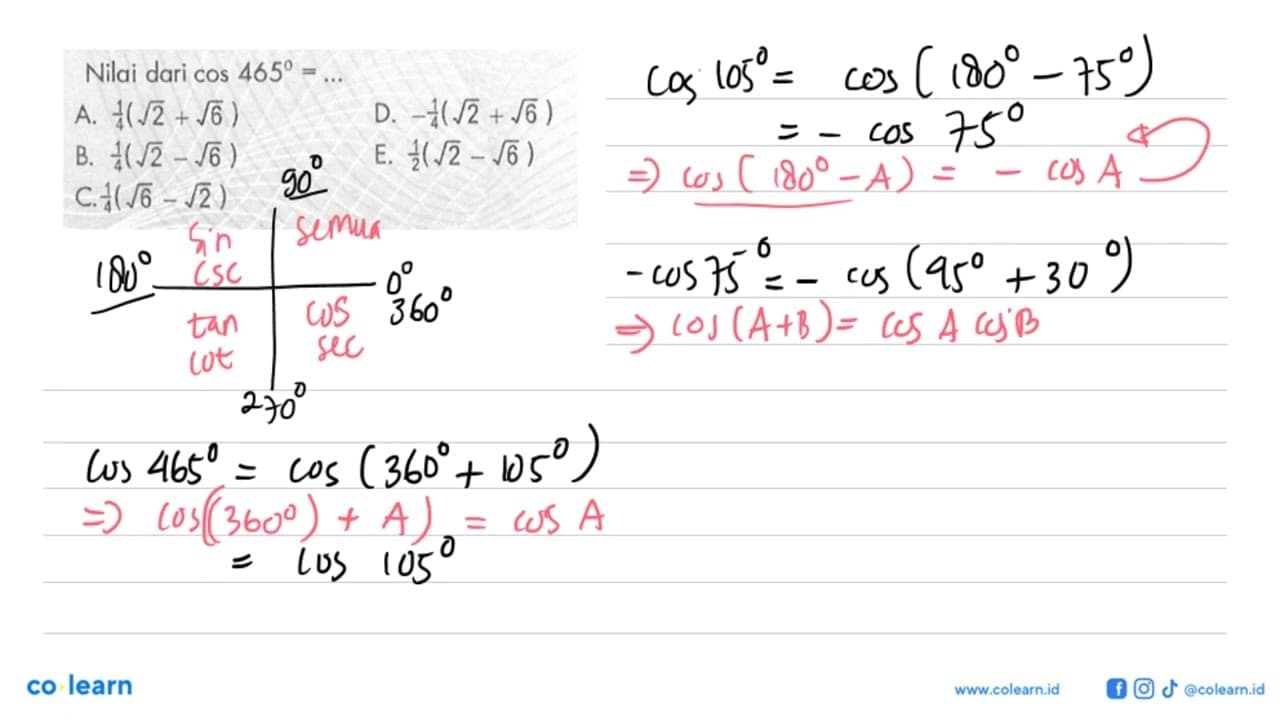 Nilai dari cos 465° = ...
A. 1/4(√2 + √6)
B. 1/4(√2 − √6)
C. 1/4(√6 − √2)
D. −1/4(√2 + √6)
E. 1/2(√2 − √6)
90°
sin
csc
semua
180°
0°
360°
tan
cot
cos
sec
270°
cos 465° = cos (360° + 105°)
⇒ cos((360°) + A) = cos A
= cos 105°
cos 105° = cos (180° − 75°)
= − cos 75°
⇒ cos (180° − A) = − cos A
−cos 75° = − cos (95° + 30°)
⇒ cos (A+B) = cos A cos B
co learn
www.colearn.id
@colearn.id